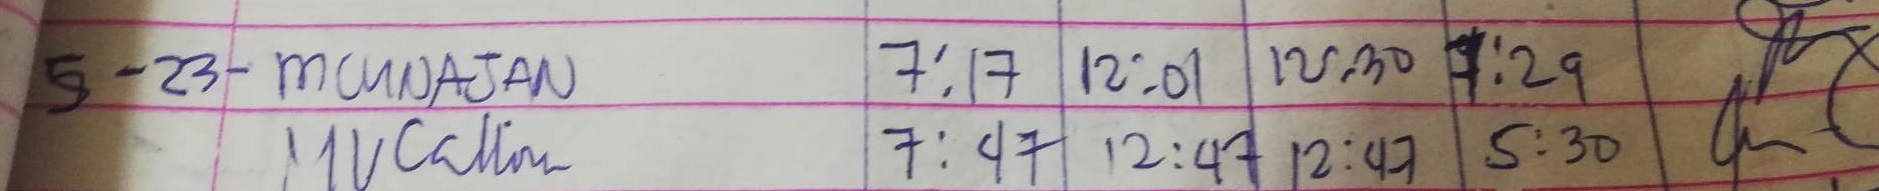 5-23- MCUNAJAN 7:17 12:01 12:30 7:29
MV Callion 7:47 12:47 12:47 5:30